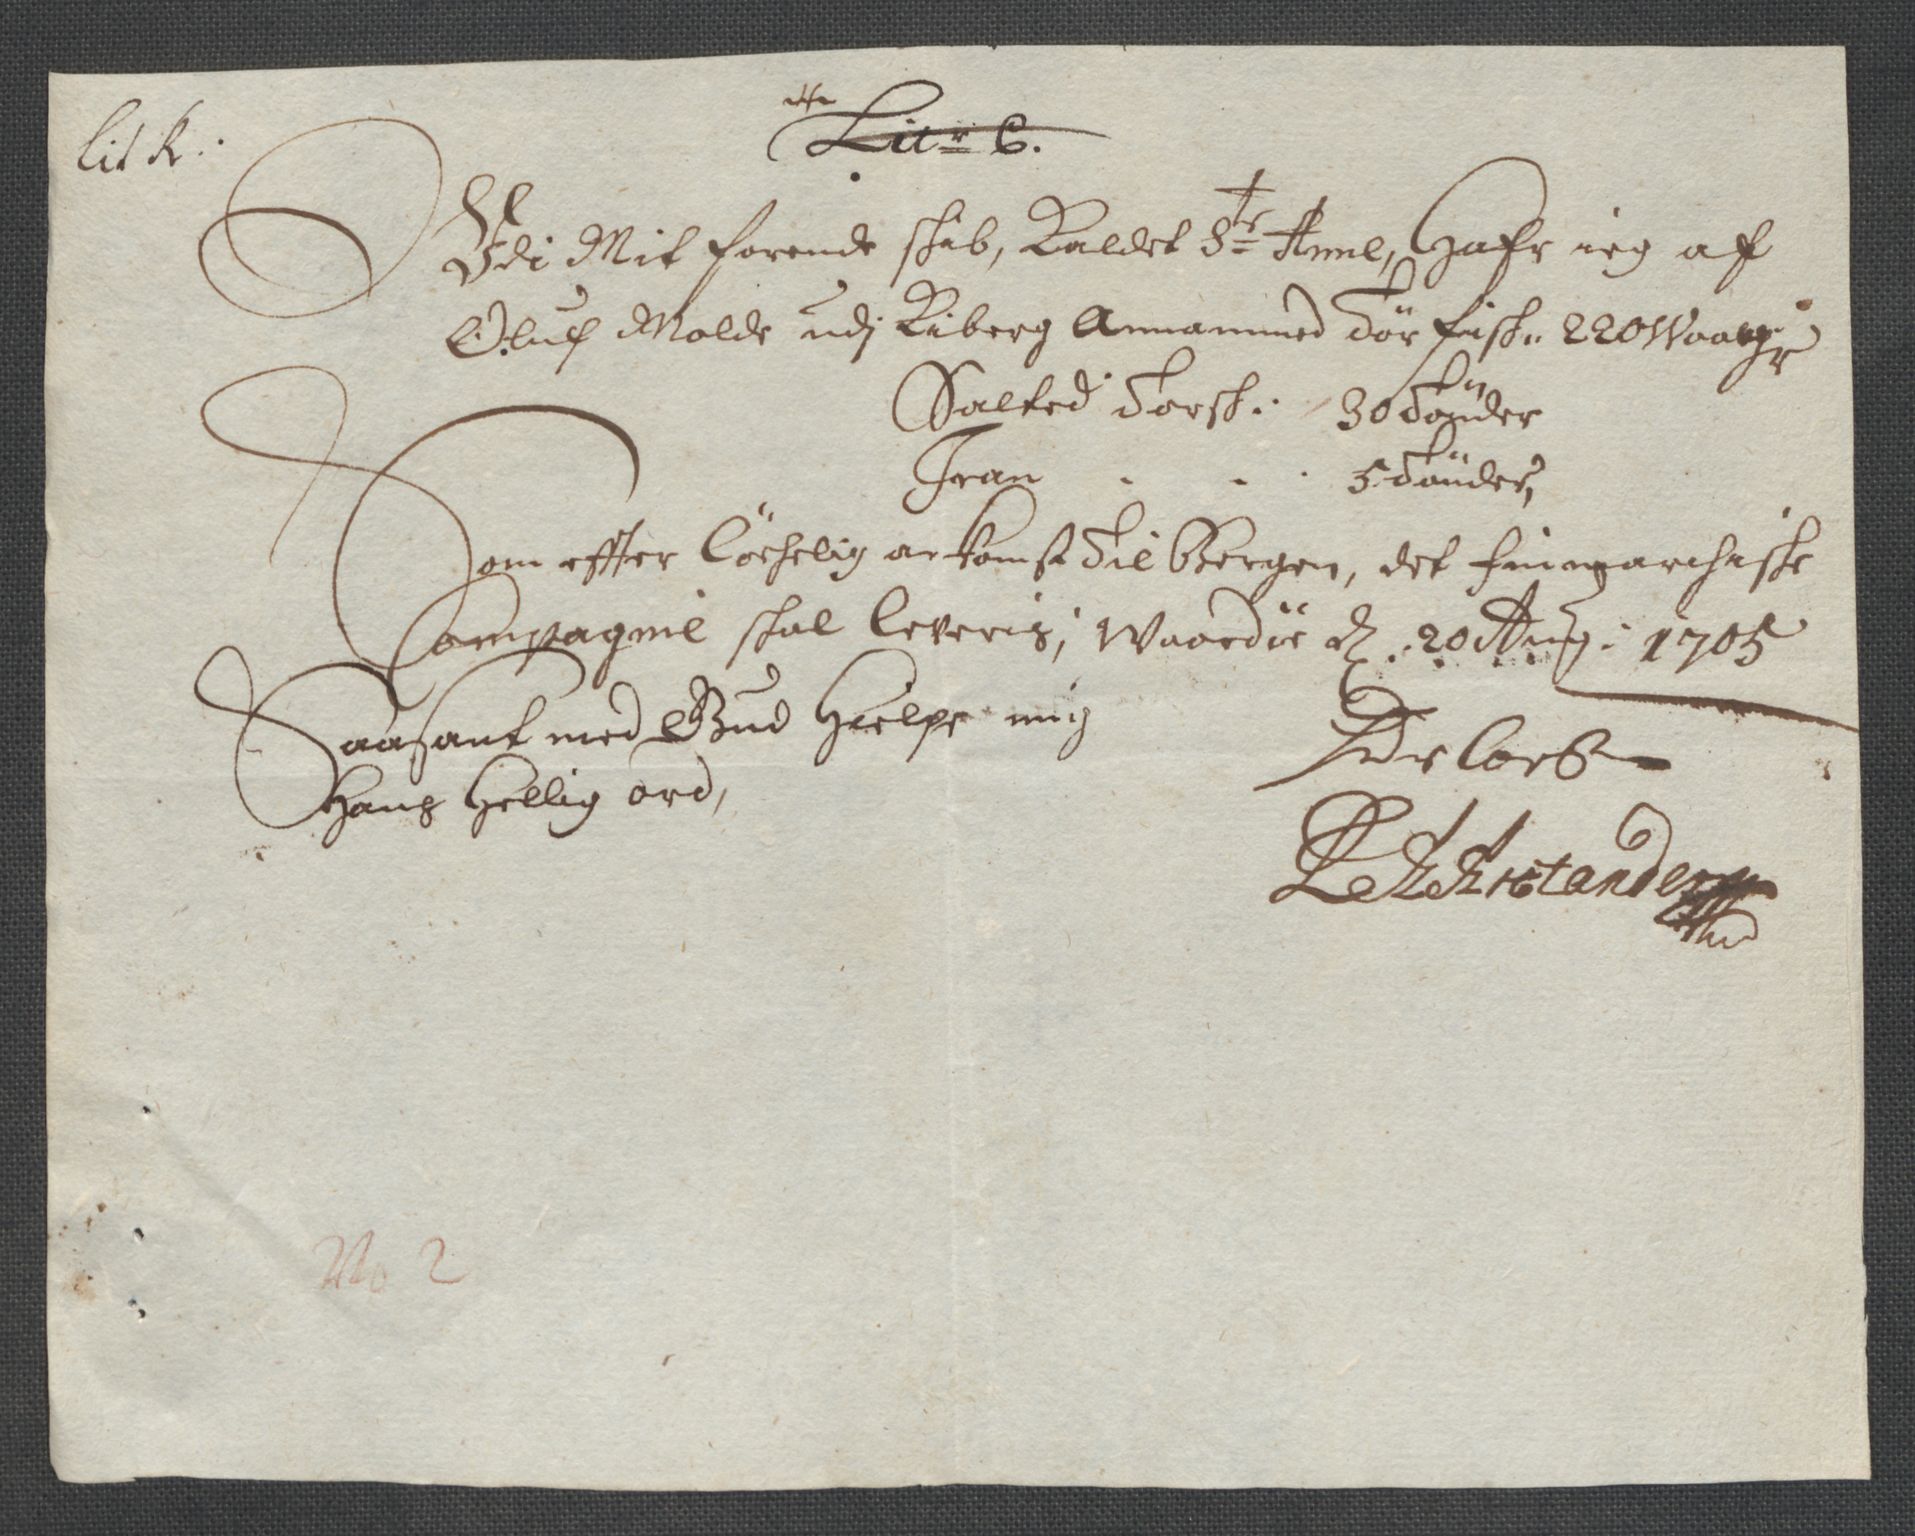 Lit K.
Litr C.
Udi Mit førende skib, Kaldet Ste Anne, Hafr ieg af
Oluf Molde udj Kiberg Annammed Tør fisk: 220 Waager
Salted Torsk: 30 Tønder
Tran 5 Tønder,
Som effter løchelig ankomst Til Bergen, det finmarchiske
Compagnie skal leveris; Waardøe d 20 Aug: 1705
Saasant med Gud Hielpe mig
Hans Hellig ord,
No 2